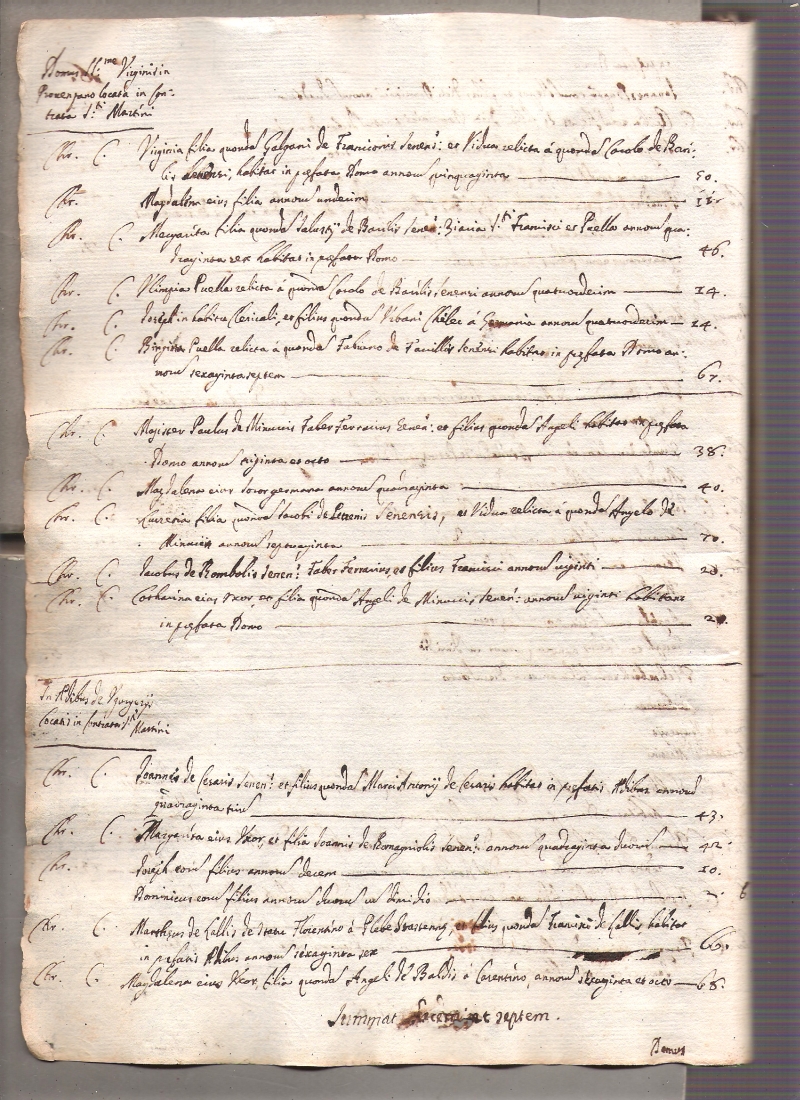 Domus S.me Virginis in
Provenzano locata in Con-
trata S.ti Martini
Chr. C. Virginia filia quonda Galgani de Franconis Senens: et Vidua relicta á quonda Carolo de Bari-
lis senensi, habitas in pręfata Domo annorum quinquaginta 50.
Chr. Magdalena eius filia annorum undecim 11
Chr. C. Margarita filia quonda Salustij de Baulis Senen: S.ti Francisci et Puella annorum qua-
draginta sex habitas in pręfata Domo 46.
Chr. C. Olimpia Puella relicta á quonda Carolo de Baulis senensi annorum quatuordecim 14.
Chr. C. Joseph in habitu Clericali, et filius quonda Urbani á Germania annorum quatuordecim 14.
Chr. C. Puella relicta á quonda Fabiano de Senensi habitas in pręfata Domo an-
norum sexaginta septem 67.
Chr. C. Magister Paulus de Minucis Faber Ferrarius Senen: et filius quonda Angeli habitas in pręfata
Domo annorum triginta et octo 38.
Chr. C. Magdalena eius soror germana annorum quadraginta 40.
Chr. C. Lucretia filia quonda Jacobi de Senensis, et Vidua relicta á quonda Angelo de
Minucis annorum septuaginta 70.
Chr. C. Jacobus de Rombolis Senen: Faber Ferrarius, et filius Francisci annorum viginti 20.
Chr. C. Catharina eius Uxor, et filia quonda Angeli de Minucis Senen: annorum viginti habitans
in pręfata Domo 20.
In Ædibus de
locatis in Contrata S.ti
Martini
Chr. C. Joannes de Cesaris Senen: et filius quonda Marci Antonij de Cesaris habitas in pręfatis Ædibus annorum
quadraginta trium 43.
Chr. C. Margarita eius Uxor, et filia Joannis de Romagniolis Senen: annorum quadraginta duorum 42.
Chr. C. Joseph eorum filius annorum decem 10.
Dominicus eorum filius annorum duorum cum dimidio
Chr. C. Mattheus de Callis de Statu Florentino á Plebe et filius quonda Francisci de Callis habitat
in pręfatis Ædibus annorum sexaginta sex 66.
Chr. C. Magdalena eius Uxor, filia quonda Angeli de Baldis á annorum sexaginta et octo 68.
Summat et septem.
Domus